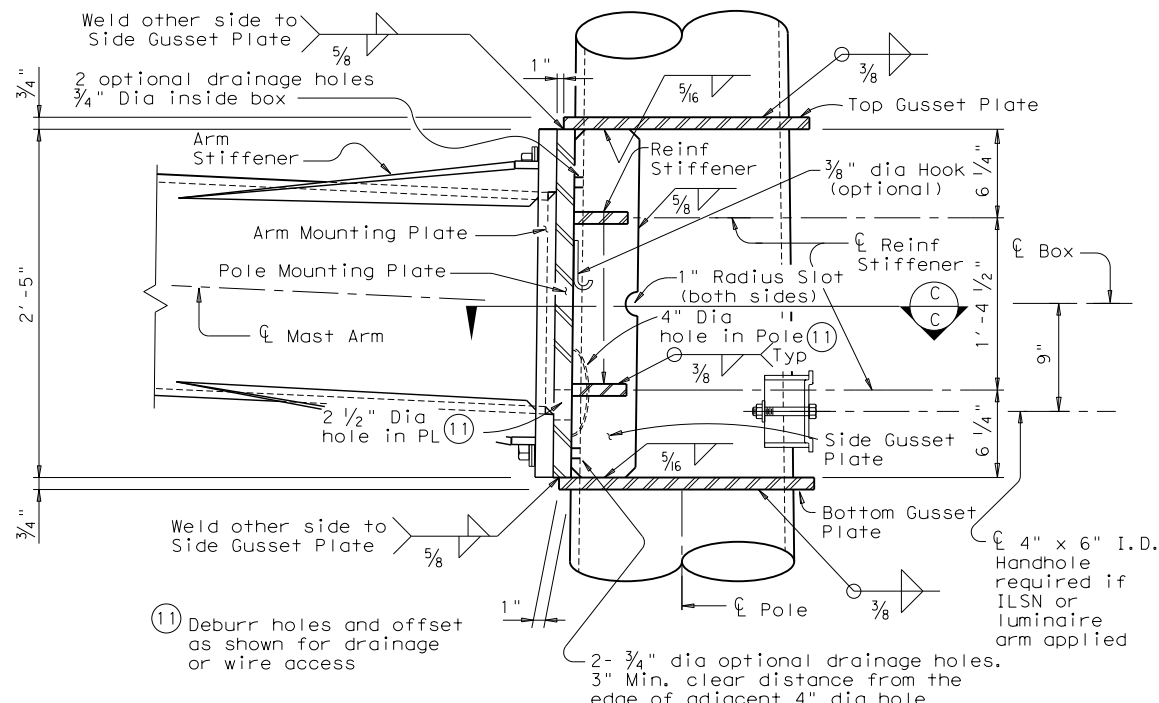 Weld other side to
Side Gusset Plate
5/8
2 optional drainage holes
3/4" Dia inside box
1"
5/16
3/8
Top Gusset Plate
3/4"
Arm
Stiffener
Reinf
Stiffener
3/8" dia Hook
(optional)
6 1/4"
5/8
Arm Mounting Plate
℄ Reinf
Stiffener
℄ Box
Pole Mounting Plate
1" Radius Slot
(both sides)
C
C
2'-5"
1'-4 1/2"
4" Dia
hole in Pole 11
℄ Mast Arm
9"
3/8
Typ
2 1/2" Dia
hole in PL 11
6 1/4"
Side Gusset
Plate
5/16
3/4"
Weld other side to
Side Gusset Plate
5/8
Bottom Gusset
Plate
℄ 4" x 6" I.D.
Handhole
required if
ILSN or
luminaire
arm applied
1"
℄ Pole
3/8
11 Deburr holes and offset
as shown for drainage
or wire access
2- 3/4" dia optional drainage holes.
3" Min. clear distance from the
edge of adjacent 4" dia hole